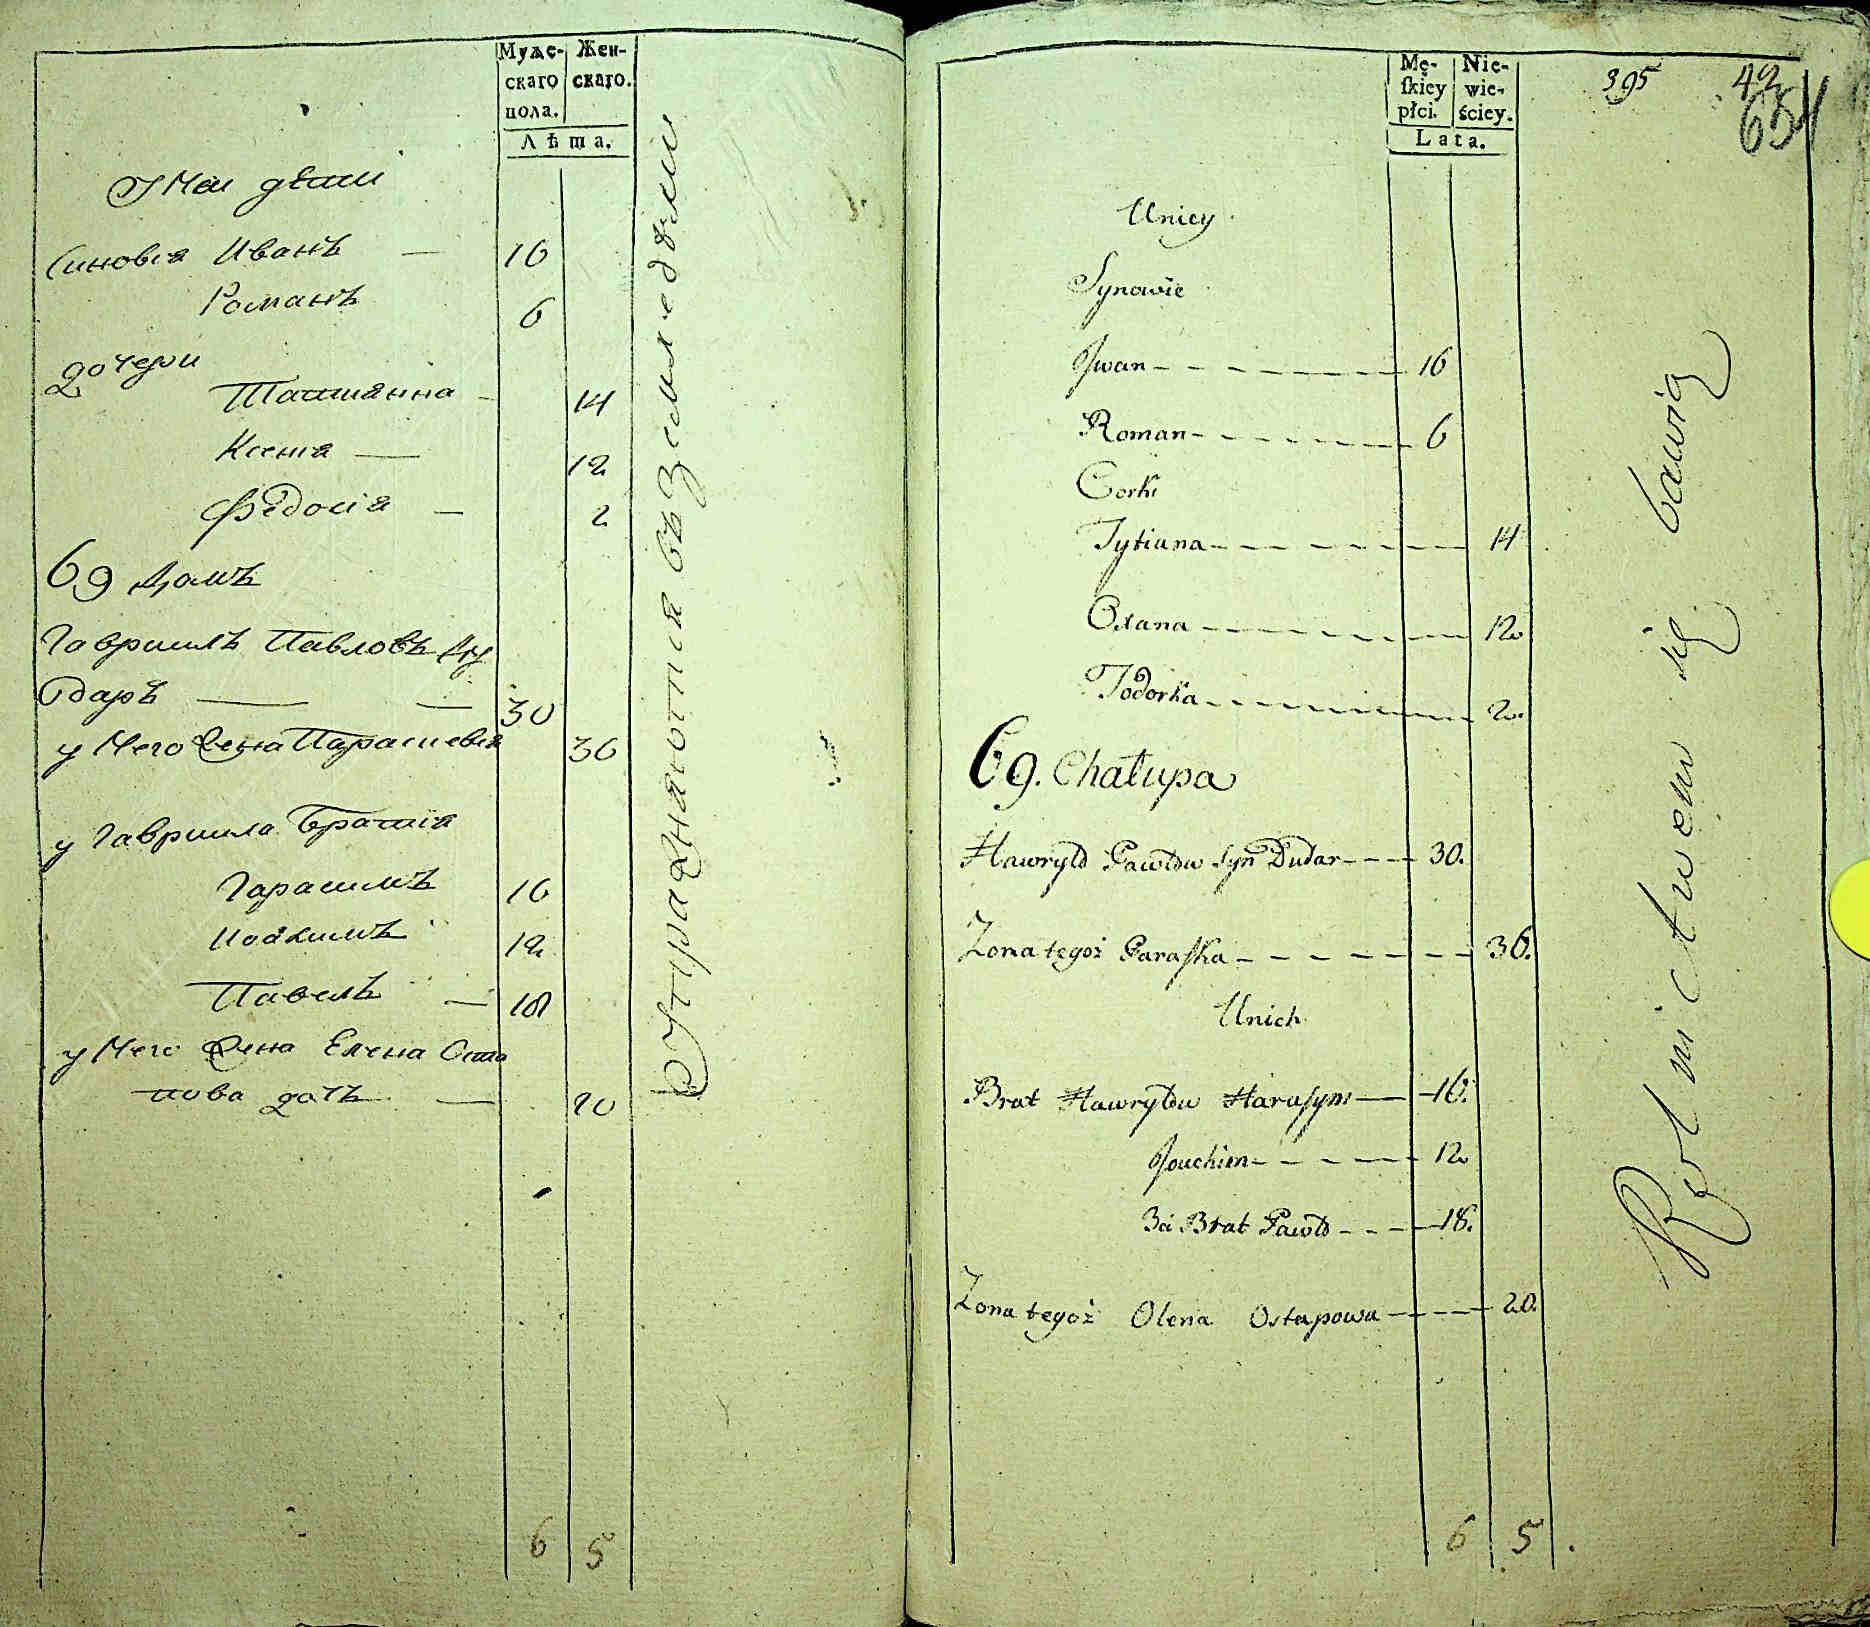 Мужескаго пола. Женскаго.
Лѣта.
У Них дѣти
Синовя Иванъ — 16
Романъ 6
Дочери
Татіянна - 14
Ксения — 12
Федосія — 2
69 Домъ
Гавриилъ Павловъ Ду
даръ — — 30
у Него Жена Парасševia 36
у Гавриила Братія
Гарасимъ 16
Иоакимъ 12
Павелъ — 18
у Него Жена Елена Оста
пова дочь — 20
6 5
Упражняются въ Земледѣлии
Mę-
ſkiey
płci.
Nie-
wie-
ściey.
Lata.
395 42
654
Unicy
Synowie
Jwan 16
Roman 6
Corki
Tytiana 14
Oxana 12
Todorka 2.
69. Chałupa
Hawryło Pawłow Syn Dudar 30.
Zona tegoż Paraſka 36.
Unich
Brat Hawryłow Haraſym 16.
Jouchim 12
3ci Brat Pawło 18.
Zona tegoż Olena Ostapowa 20.
6 5.
Rolnictwem się bawią